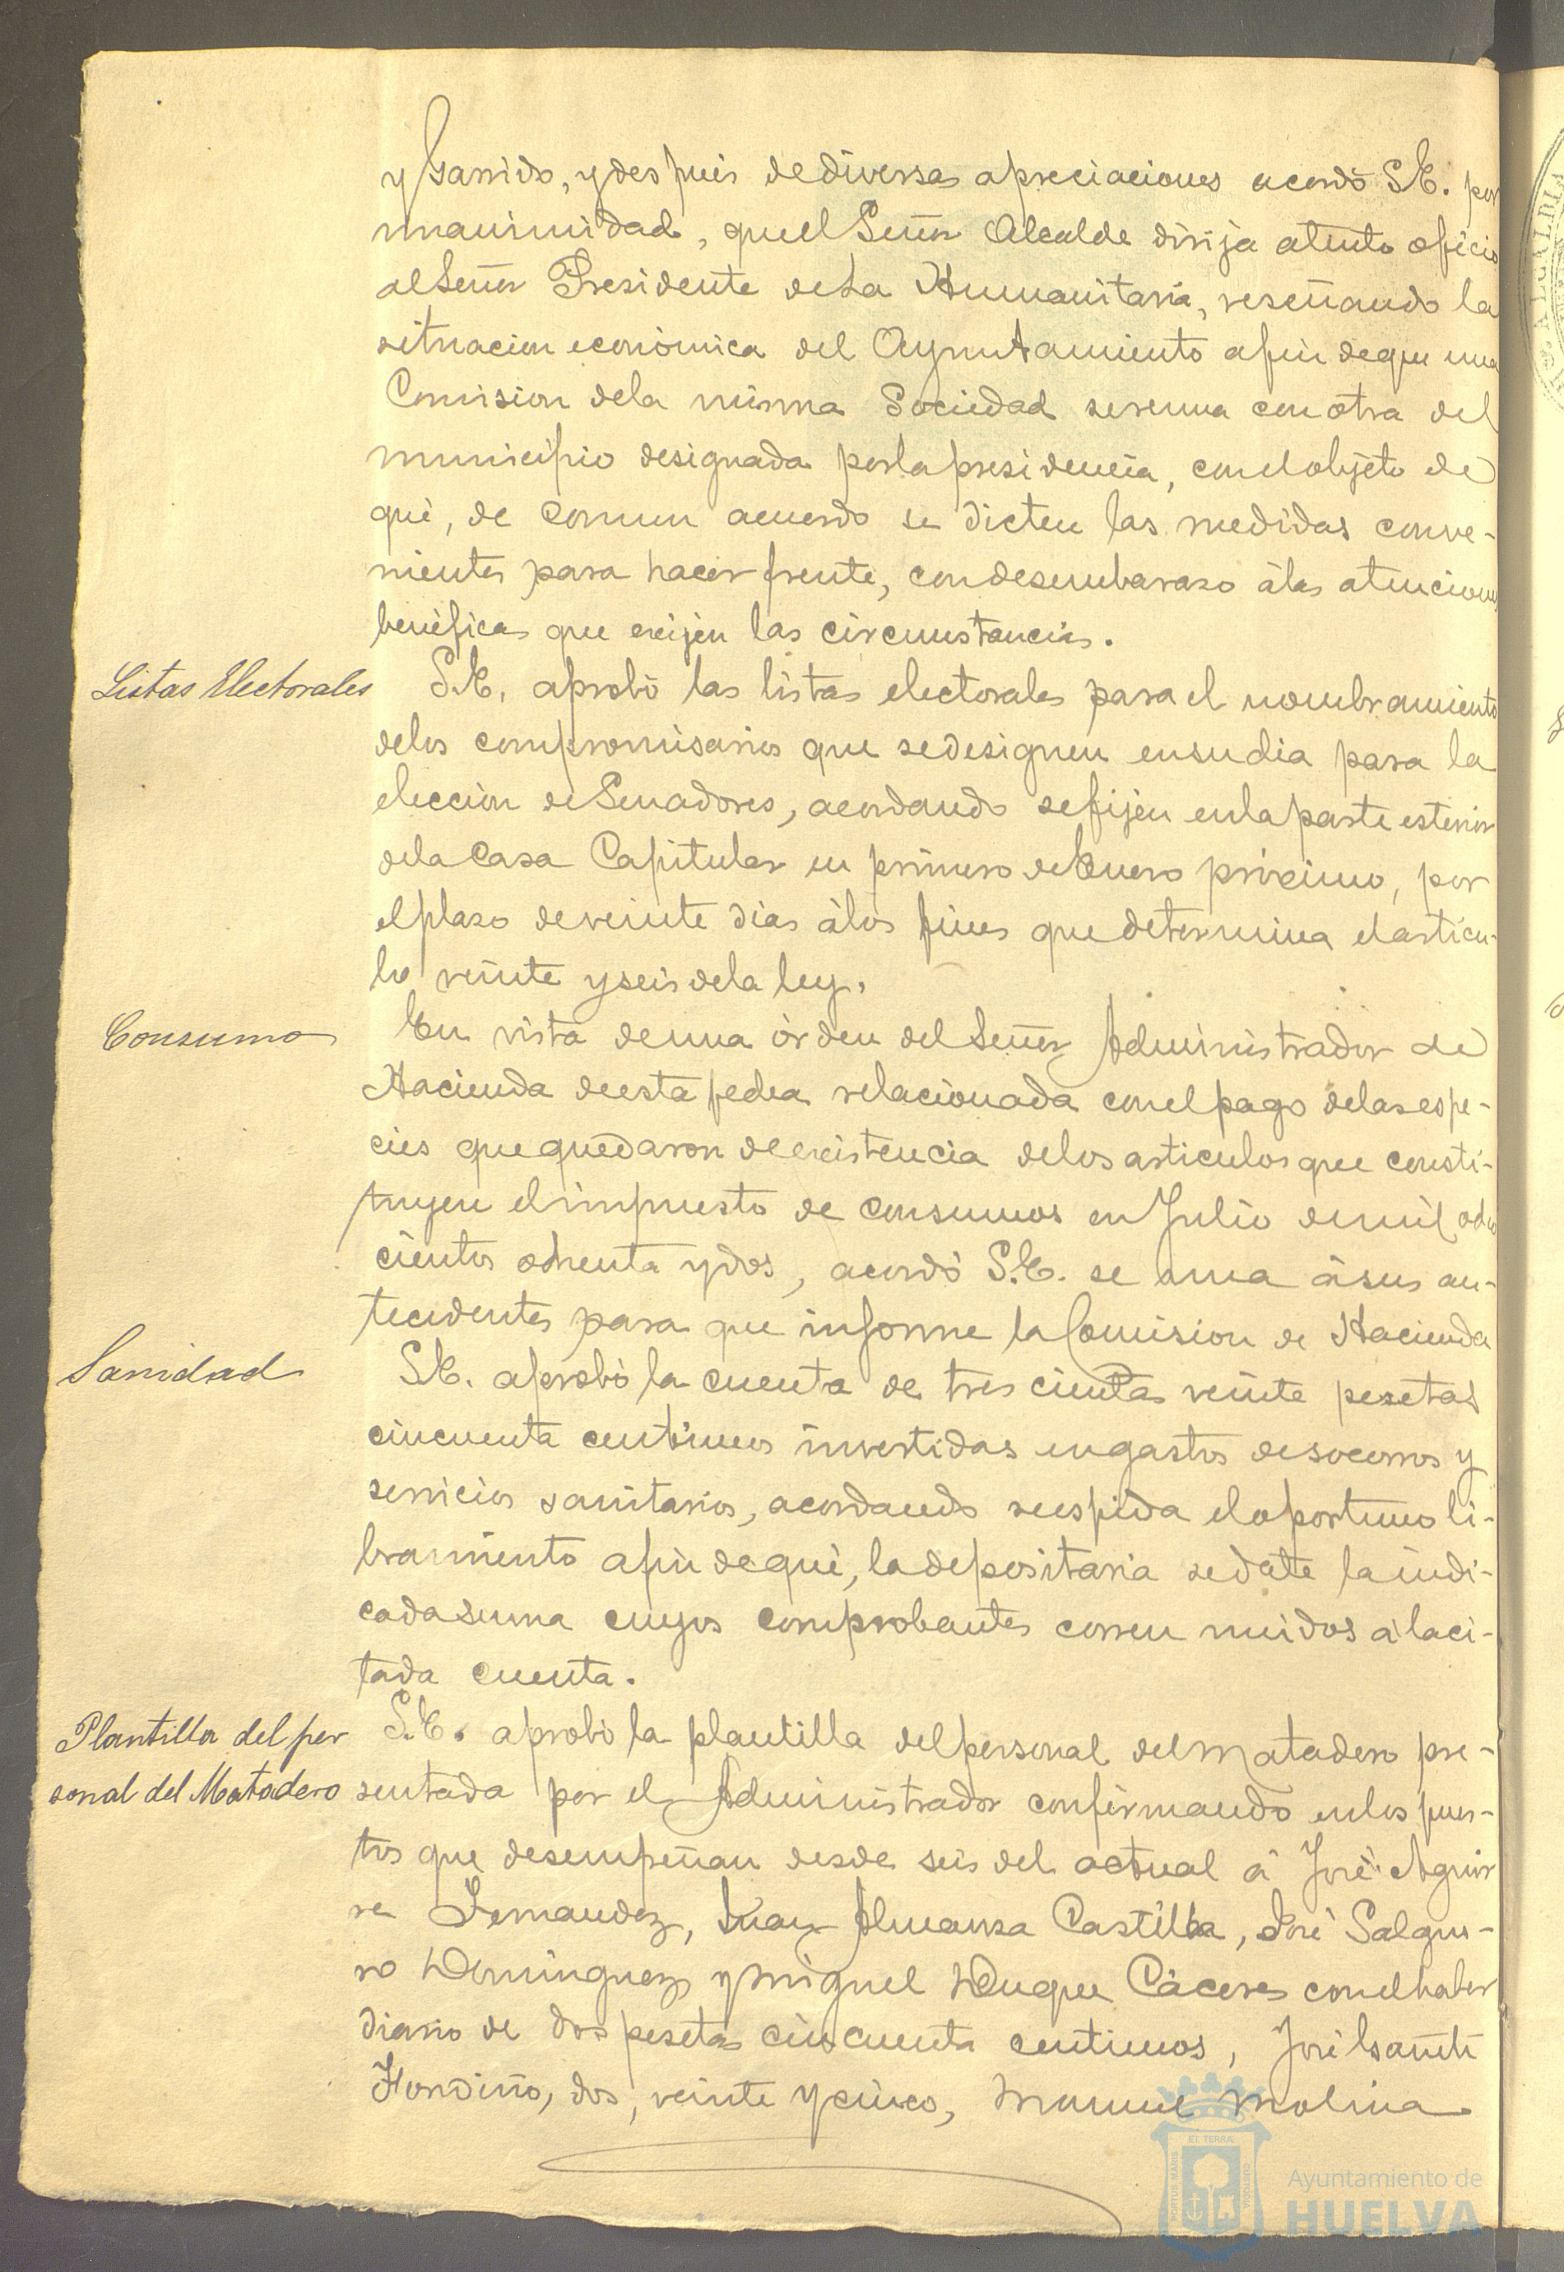 y Garrido, y despues de diversas apreciaciones acordó S.E. por
unanimidad, que el Señor Alcalde dirija atento oficio
al Señor Presidente de La Humanitaria, reseñando la
situacion económica del Ayuntamiento afin de que una
Comision de la misma Sociedad se reuna con otra del
municipio designada por la presidencia, con el objeto de
qué, de comun acuerdo se dicten las medidas conve-
nientes para hacer frente, con desembarazo á las atenciones
benéficas que exijen las circunstancias.
Listas Electorales
S.E. aprobó las listas electorales para el nombramiento
de los compromisarios que se designen en su dia para la
eleccion de Senadores, acordando se fijen en la parte esterior
de la Casa Capitular en primero de Enero próximo, por
el plazo de veinte dias á los fines que determina el artícu-
lo veinte y seis de la ley.
Consumo
En vista de una órden del Señor Administrador de
Hacienda de esta fecha relacionada con el pago de las espe-
cies que quedaron de existencia de los articulos que consti-
tuyen el impuesto de consumos en Julio de mil ocho
cientos ochenta y dos, acordó S.E. se una á sus an-
tecedentes para que informe la Comision de Hacienda
Sanidad
S.E. aprobó la cuenta de tres cientas veinte pesetas
cincuenta centimos invertidas en gastos de socorros y
servicios sanitarios, acordando se espida el oportuno li-
bramiento afin de qué, la depositaria se date la indi-
cada suma cuyos comprobantes corren unidos á la ci-
tada cuenta.
Plantilla del per
sonal del Matadero
S.E. aprobó la plantilla del personal del Matadero pre-
sentada por el Administrador confirmando en los pues-
tos que desempeñan desde seis del actual á José Aguir
re Fernandez, Juan Almansa Castilla, José Salgue-
ro Dominguez y Miguel Duque Cáceres con el haber
diario de dos pesetas cincuenta centimos, José
dos, veinte y cinco, Manuel Molina
PORTUS MARIS
ET TERRÆ
CUSTODIA
Ayuntamiento de
HUELVA